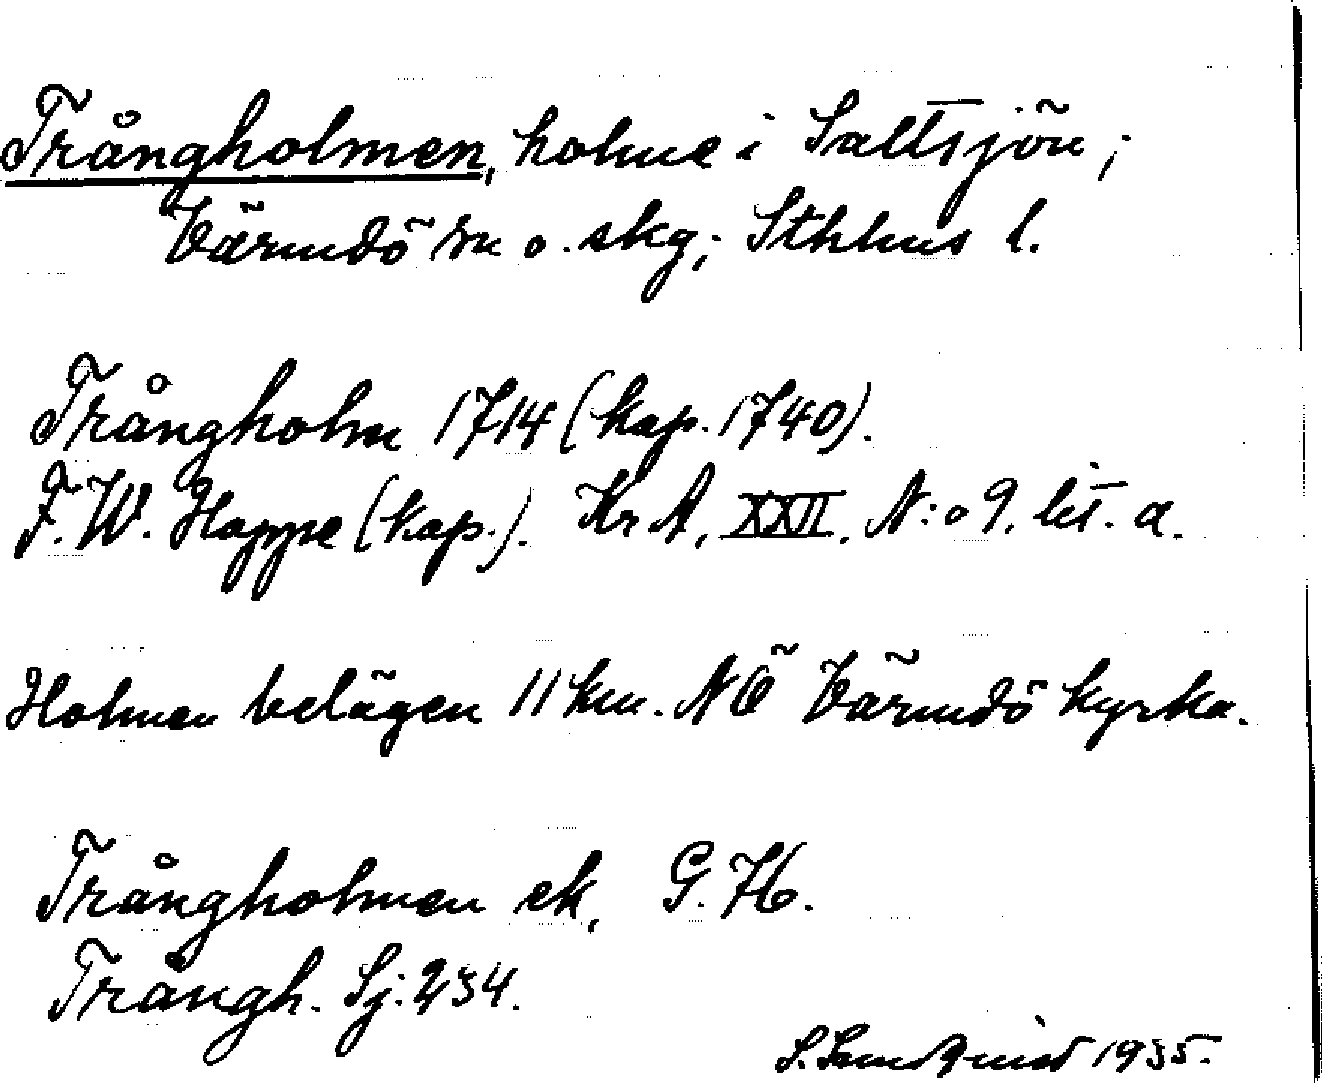 Trångholmen, holme i Saltsjön;
Värmdö sn o. skg; Sthlms l.
Trångholm 1714 (kop. 1740).
F. W. Hoppe (kop.). Kr A, XXII. N:o 9. lit. a.
Holmen belägen 11 km. NÖ Värmdö kyrka.
Trångholmen ek, G. 76.
Trångh. Sj. 234.
S. 1935.